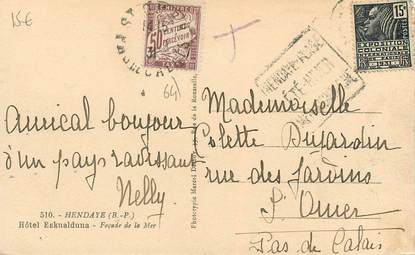 15€
50
CENTIMES
À PERCEVOIR
64
HENDAYE-PLAGE
15c
EXPOSITION
COLONIALE
INTERNATIONALE
PARIS 1931
Amical bonjour
d'un pays ravissant
Nelly
510. - HENDAYE (B.-P.)
Hôtel Eskualduna - Façade de la Mer
Phototypie Marcel
Mademoiselle
Colette Dujardin
rue des Jardins
St Omer
Pas de Calais